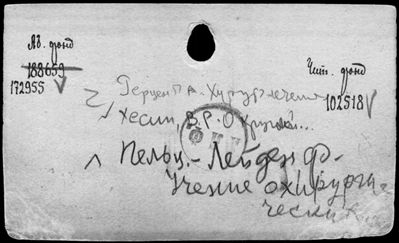 Яв. фонд
188659
172955
Чит. фонд
102518
Герцен П А. Хирург лечение
Хесин, В.Р. О хрупкой...
Пельц. - Лейден Ф.
Учение о хирурги-
ческих